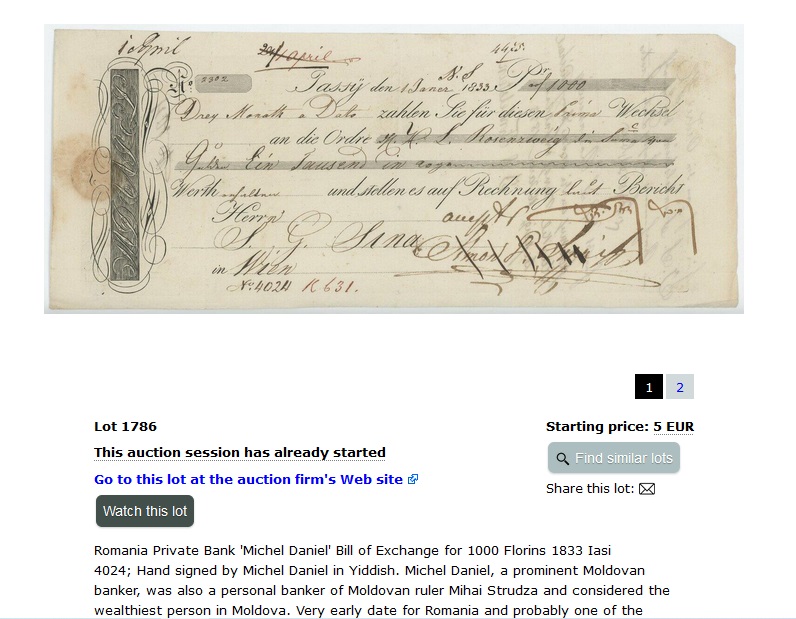 1 April
24/1 april
44 25.
No. 2302
Jassÿ den 1 Janer N. S. 1833. Pr. f 1000
Drey Monath a Dato zahlen Sie für diesen prima Wechsel
an die Ordre H. H. L. Rosenzweig
Gulden Ein Tausend in
Werth erhalten und stellen es auf Rechnung laut Bericht
Herrn
S. G. Sina
in Wien
No. 4024 K 631.
1 2
Lot 1786
Starting price: 5 EUR
This auction session has already started
Find similar lots
Go to this lot at the auction firm's Web site
Share this lot:
Watch this lot
Romania Private Bank 'Michel Daniel' Bill of Exchange for 1000 Florins 1833 Iasi
4024; Hand signed by Michel Daniel in Yiddish. Michel Daniel, a prominent Moldovan
banker, was also a personal banker of Moldovan ruler Mihai Strudza and considered the
wealthiest person in Moldova. Very early date for Romania and probably one of the